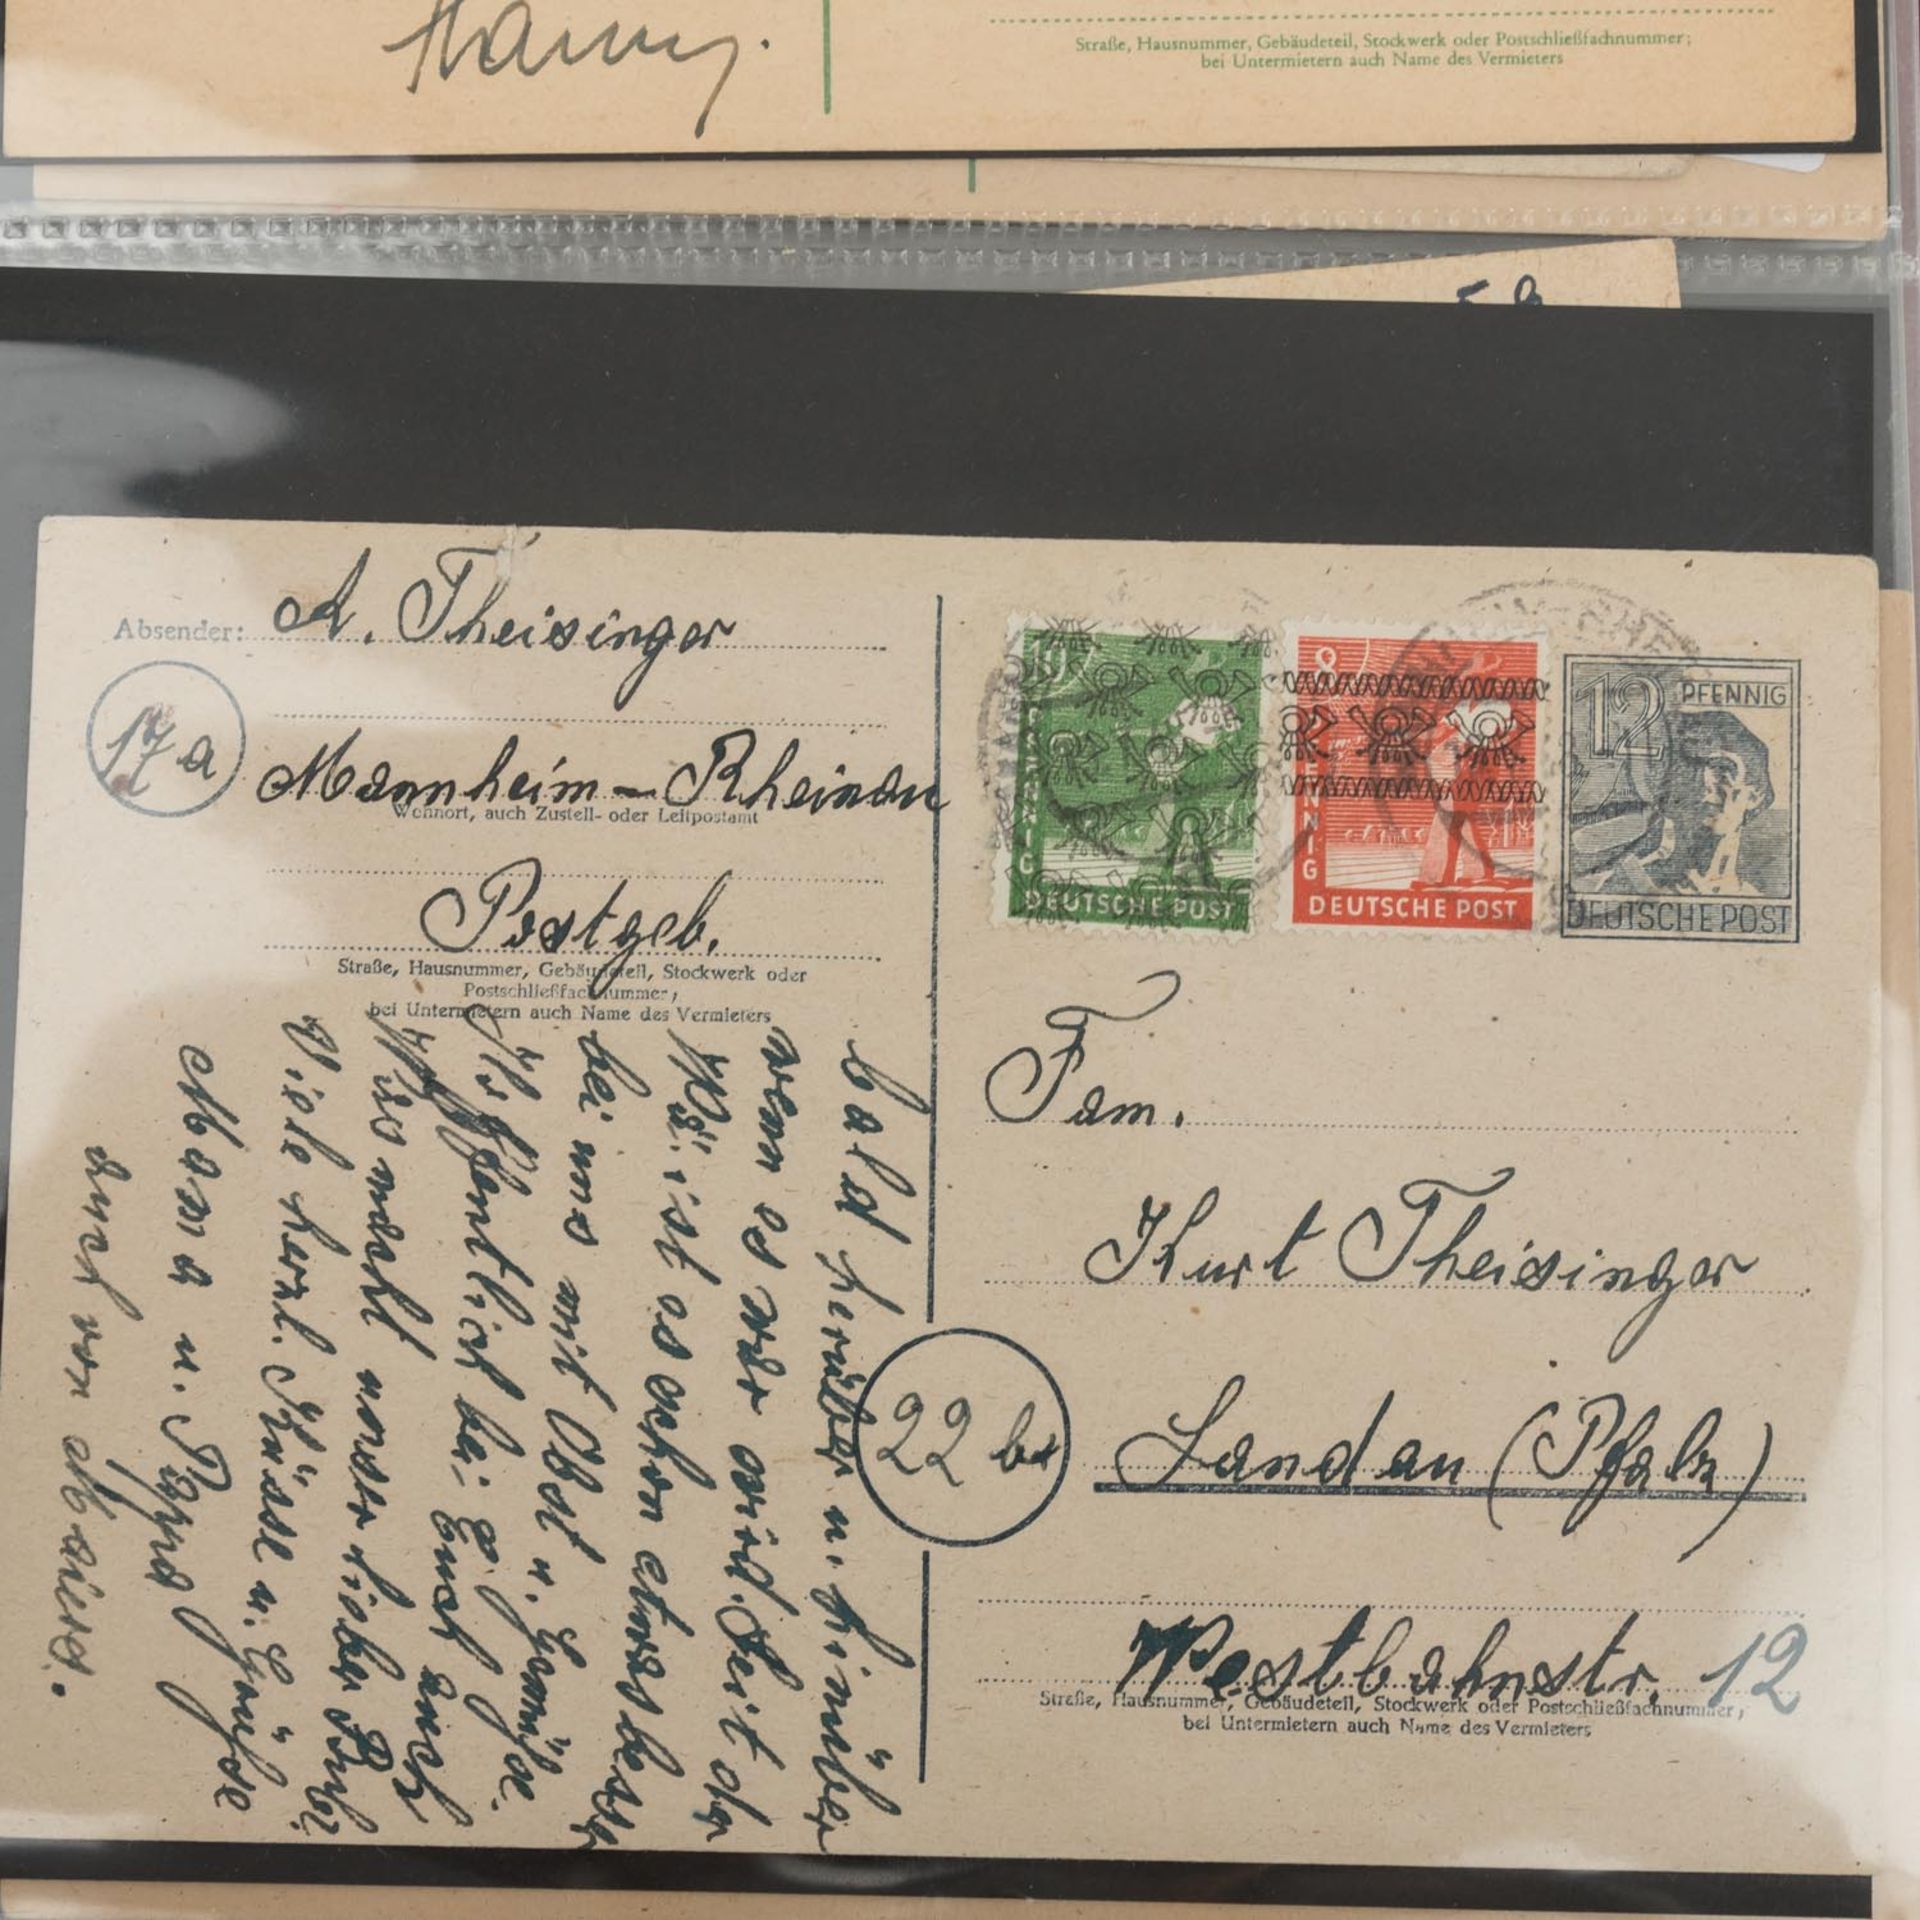 Hanny.
Straße, Hausnummer, Gebäudeteil, Stockwerk oder Postschließfachnummer;
bei Untermietern auch Name des Vermieters
Absender: A. Theisinger
17a
Mannheim-Rheinau
Wohnort, auch Zustell- oder Leitpostamt
Postgeb.
Straße, Hausnummer, Gebäudeteil, Stockwerk oder
Postschließfachnummer,
bei Untermietern auch Name des Vermieters
bald herüber u. hinüber
wenn es wahr wird. Seit der
W. ist es schon etwas besser
bei uns mit Obst u. Gemüse.
Hoffentlich bei Euch auch
Was macht unser lieber Bubi
Viele herzl. Küsse u. Grüße
Mama u. Pappa
auch von
10
PFENNIG
DEUTSCHE POST
8
PFENNIG
DEUTSCHE POST
12 PFENNIG
DEUTSCHE POST
Fam.
Kurt Theisinger
22 b
Landau (Pfalz)
Westbahnstr. 12
Straße, Hausnummer, Gebäudeteil, Stockwerk oder Postschließfachnummer,
bei Untermietern auch Name des Vermieters